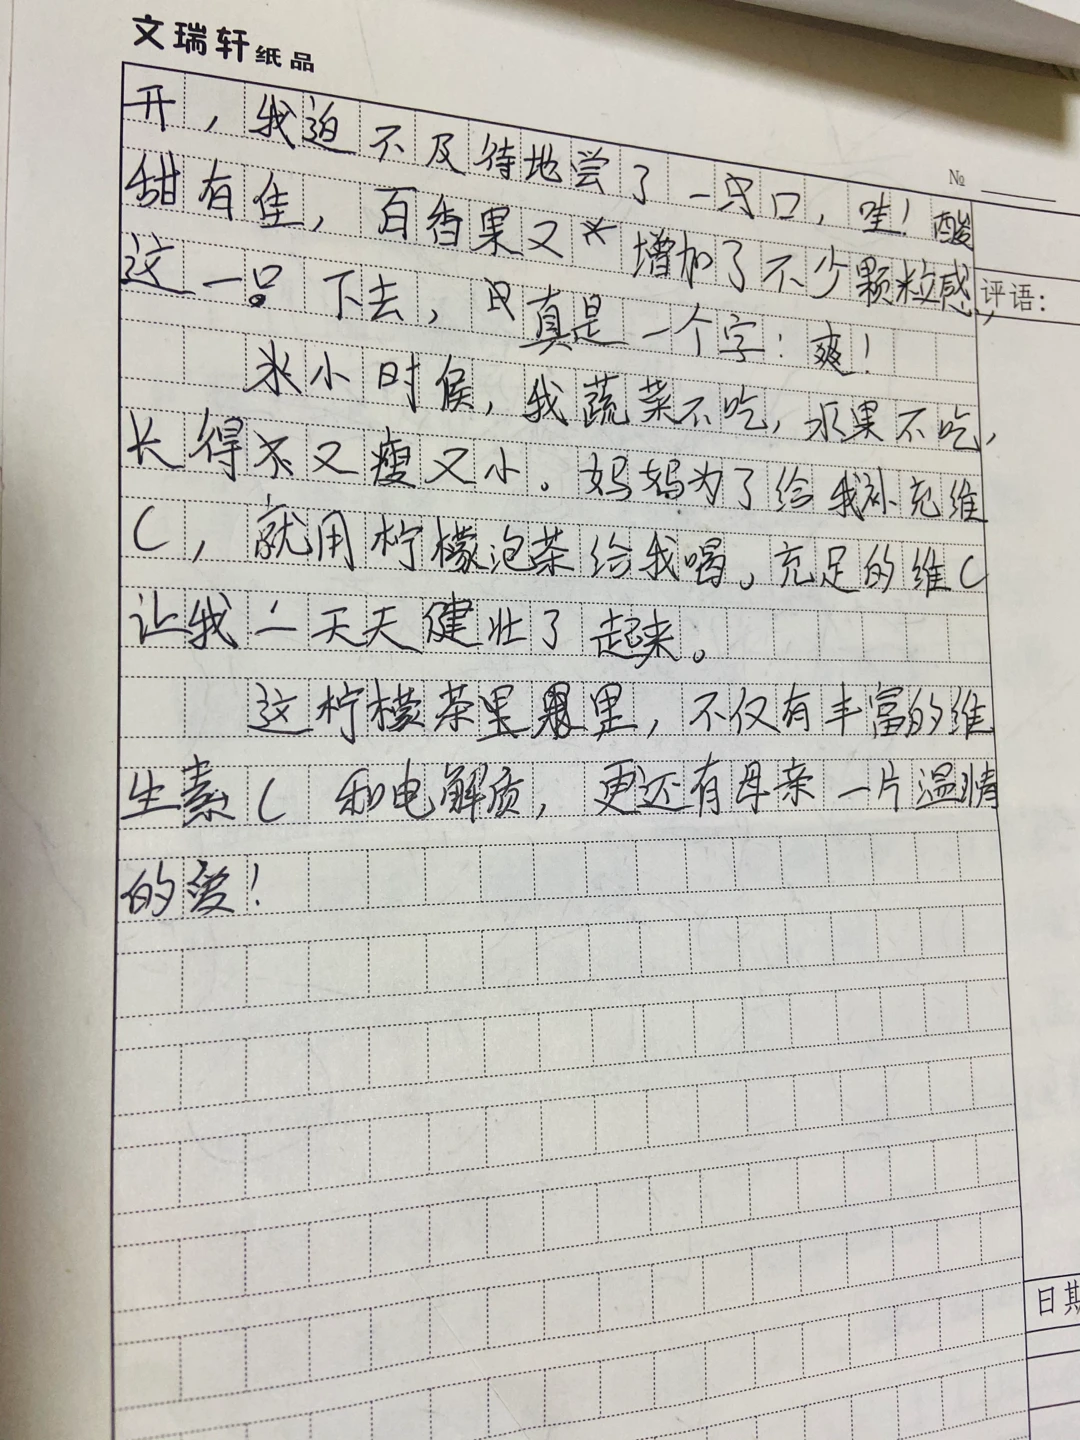 文瑞轩纸品
№
开，我迫不及待地尝了一口，哇！酸
甜有佳，百香果又增加了不少颗粒感，
这一口下去，真是一个字：爽！
评语：
小时候，我蔬菜不吃，水果不吃，
长得又瘦又小。妈妈为了给我补充维
C，就用柠檬泡茶给我喝。充足的维C
让我一天天健壮了起来。
这柠檬茶里，不仅有丰富的维
生素C和电解质，更还有母亲一片温情
的爱！
日期